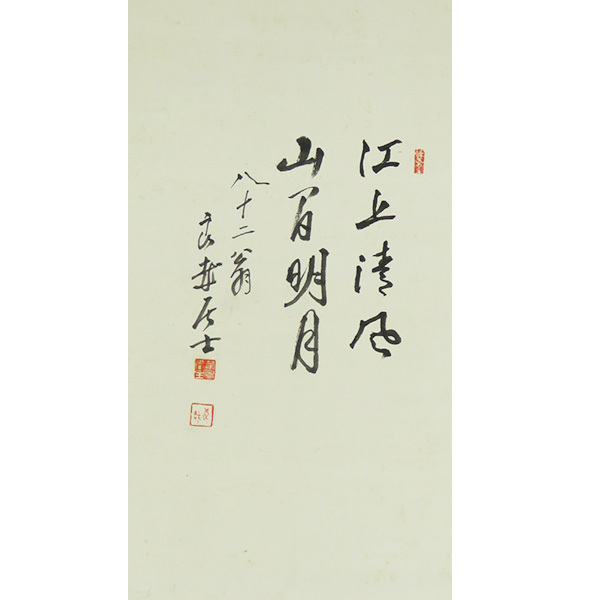 江上清風
山間明月
八十二翁
居士